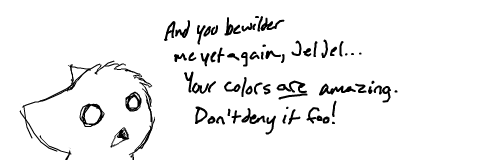 And you bewilder
me yet again, Jel Jel...
Your colors are amazing.
Don't deny it foo!